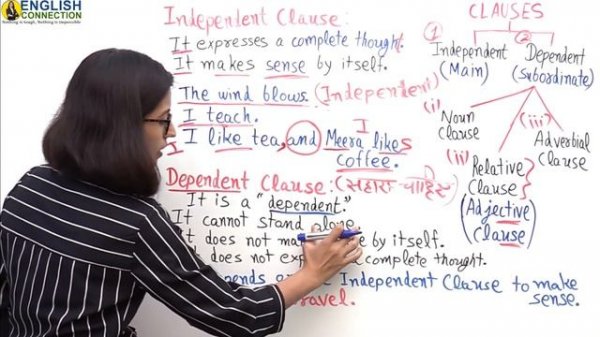 ENGLISH
CONNECTION
Nothing is Rough, Nothing is Impossible
Independent Clause:
It expresses a complete thought.
It makes sense by itself.
The wind blows. (Independent)
I teach.
I I
I like tea, and Meera likes
coffee.
Dependent Clause: (सहारा चाहिए)
It is a "dependent."
It cannot stand alone.
It does not by itself.
does not complete thought.
Independent Clause to make
sense.
CLAUSES
① ②
Independent Dependent
(Main) (Subordinate)
(i) (iii)
Noun
Clause
Adverbial
Clause
(ii) Relative
Clause
(Adjective
Clause)